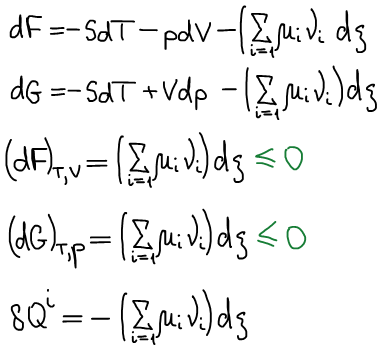 dF = -SdT - pdV - (∑_{i=1} μ_i ν_i dξ
dG = -SdT + Vdp - (∑_{i=1} μ_i ν_i) dξ
(dF)_{T,V} = (∑_{i=1} μ_i ν_i) dξ ≤ 0
(dG)_{T,p} = (∑_{i=1} μ_i ν_i) dξ ≤ 0
δQ^i = - (∑_{i=1} μ_i ν_i) dξ